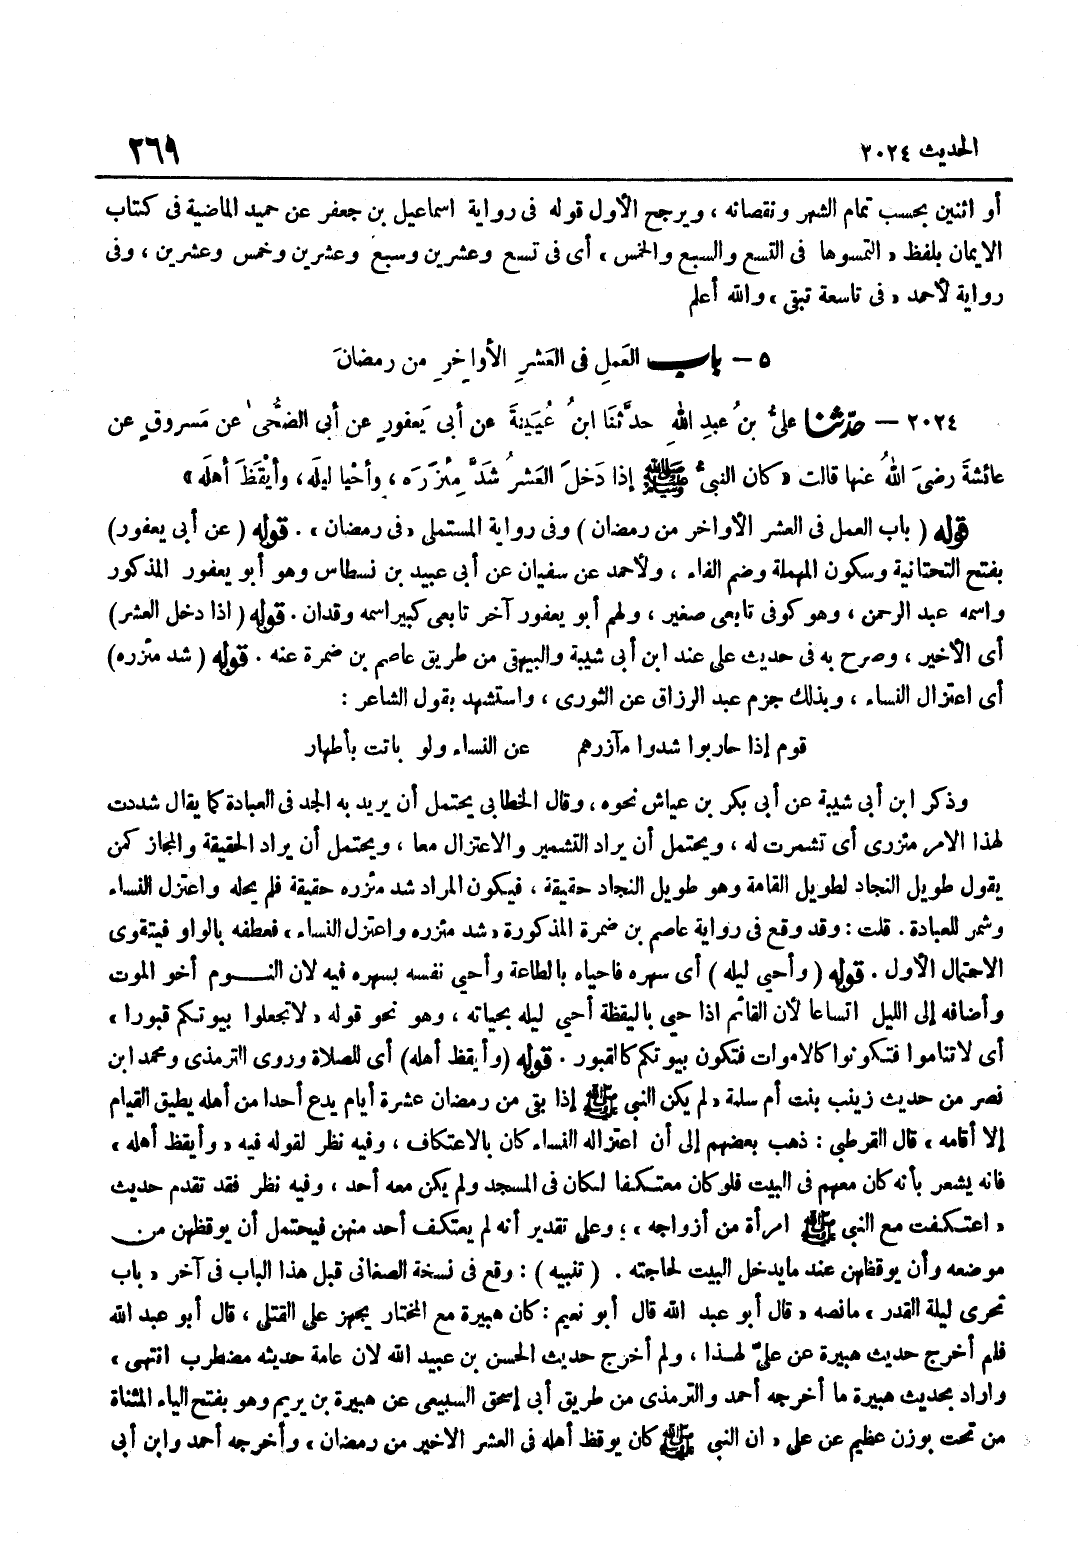 الحديث ٢٠٢٤ ٢٦٩
أو اثنين بحسب تمام الشهر ونقصانه ، ويرجح الأول قوله فى رواية اسماعيل بن جعفر عن حميد الماضية فى كتاب
الايمان بلفظ « التمسوها فى التسع والسبع والخمس ، أى فى تسع وعشرين وسبع وعشرين وخمس وعشرين ، وفى
رواية لأحمد « فى تاسعة تبقى ، والله أعلم
٥ – باب العَملِ فى العَشرِ الأواخرِ من رمضانَ
٢٠٢٤ – حدّثنا علىُّ بنُ عبدِ اللهِ حدَّثنَا ابنُ عُيَينةَ عن أبى يَعفورٍ عن أبى الضُّحىٰ عن مَسروقٍ عن
عائشةَ رضىَ اللهُ عنها قالت « كان النبىُّ ﷺ إذا دَخلَ العَشرُ شدَّ مِئزَرَه ، وأحْيا ليلَه، وأيْقظَ أهلَه »
قوله ( باب العمل فى العشر الأواخر من رمضان ) وفى رواية المستملى « فى رمضان » . قوله ( عن أبى يعفور )
بفتح التحتانية وسكون المهملة وضم الفاء ، ولأحمد عن سفيان عن أبى عبيد بن نسطاس وهو أبو يعفور المذكور
واسمه عبد الرحمن ، وهو كوفى تابعى صغير ، ولهم أبو يعفور آخر تابعى كبير اسمه وقدان . قوله ( اذا دخل العشر )
أى الأخير ، وصرح به فى حديث على عند ابن أبى شيبة والبيهقى من طريق عاصم بن ضمرة عنه . قوله ( شد مئزره )
أى اعتزال النساء ، وبذلك جزم عبد الرزاق عن الثورى ، واستشهد بقول الشاعر :
قوم إذا حاربوا شدوا مآزرهم عن النساء ولو باتت بأطهار
وذكر ابن أبى شيبة عن أبى بكر بن عياش نحوه ، وقال الخطابى يحتمل أن يريد به الجد فى العبادة كما يقال شددت
لهذا الامر مئزرى أى تشمرت له ، ويحتمل أن يراد التشمير والاعتزال معا ، ويحتمل أن يراد الحقيقة والمجاز كمن
يقول طويل النجاد لطويل القامة وهو طويل النجاد حقيقة ، فيكون المراد شد مئزره حقيقة فلم يحله واعتزل النساء
وشمر للعبادة . قلت : وقد وقع فى رواية عاصم بن ضمرة المذكورة « شد مئزره واعتزل النساء ، فعطفه بالواو فيتقوى
الاحتمال الأول . قوله ( وأحيى ليله ) أى سهره فاحياه بالطاعة وأحيى نفسه بسهره فيه لان النـوم أخو الموت
وأضافه إلى الليل اتساعا لأن القائم اذا حيى باليقظة أحيى ليله بحياته ، وهو نحو قوله « لاتجعلوا بيوتكم قبورا »
أى لاتناموا فتكونوا كالاموات فتكون بيوتكم كالقبور . قوله (وأيقظ أهله) أى للصلاة وروى الترمذى ومحمد ابن
نصر من حديث زينب بنت أم سلمة « لم يكن النبى ﷺ إذا بقى من رمضان عشرة أيام يدع أحدا من أهله يطيق القيام
إلا أقامه ، قال القرطبى : ذهب بعضهم إلى أن اعتزاله النساء كان بالاعتكاف ، وفيه نظر لقوله فيه « وأيقظ أهله ،
فانه يشعر بأنه كان معهم فى البيت فلو كان معتكفا لكان فى المسجد ولم يكن معه أحد ، وفيه نظر فقد تقدم حديث
« اعتكفت مع النبى ﷺ امرأة من أزواجه » ؛ وعلى تقدير أنه لم يعتكف أحد منهن فيحتمل أن يوقظهن من
موضعه وأن يوقظهن عند مايدخل البيت لحاجته . ( تنبيه ) : وقع فى نسخة الصغانى قبل هذا الباب فى آخر « باب
تحرى ليلة القدر ، مانصه « قال أبو عبد الله قال أبو نعيم : كان هبيرة مع المختار يجهز على القتلى ، قال أبو عبد الله
فلم أخرج حديث هبيرة عن علىّ لهـذا ، ولم أخرج حديث الحسن بن عبيد الله لان عامة حديثه مضطرب انتهى »
واراد بحديث هبيرة ما أخرجه أحمد والترمذى من طريق أبى إسحق السبيعى عن هبيرة بن يريم وهو بفتح الياء المثناة
من تحت بوزن عظيم عن على « ان النبى ﷺ كان يوقظ أهله فى العشر الاخير من رمضان » وأخرجه أحمد وابن أبى